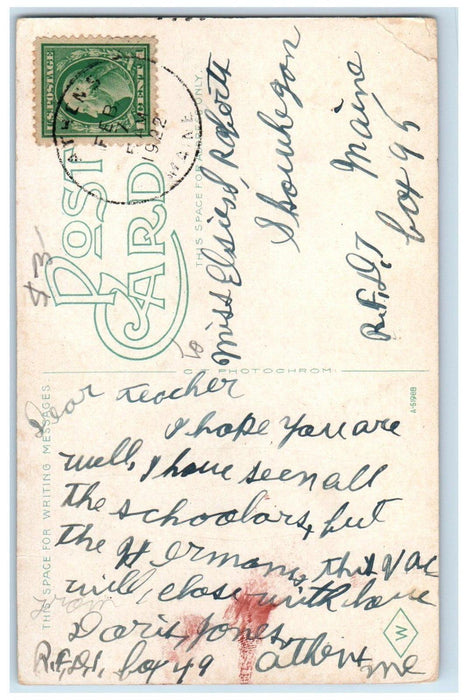 U.S.POSTAGE
1 CENT 1
ATHENS
FEB
7
1922
MAINE
POST
CARD
THIS SPACE FOR ADDRESS ONLY.
$3-
To
Miss Elsie S, Roberts
Skowhegan
Maine
R.F.D.1
box 95
C.T. PHOTOCHROM
A-51988
THIS SPACE FOR WRITING MESSAGES
Dear teacher
I hope you are
well, I have seen all
the schoolars, but
the Hermans, this Vac
will, close with love
From
Doris Jones,
R.F.D.1, box 49 athens me
W